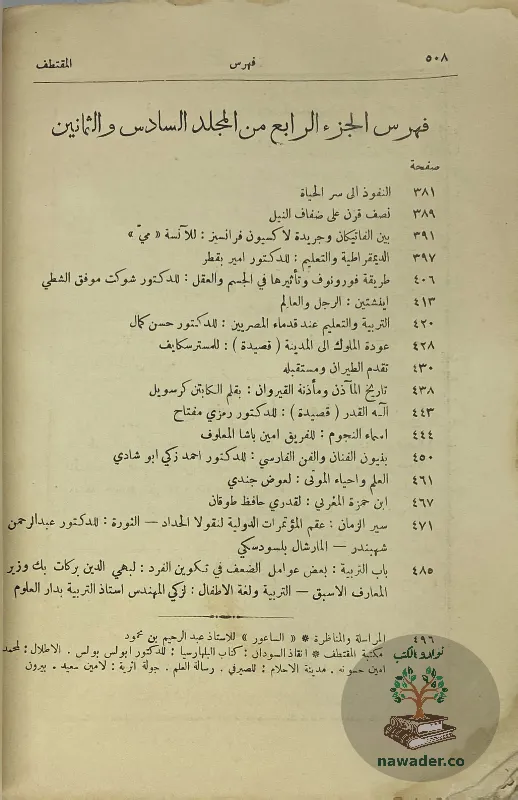 ٥٠٨ فهرس المقتطف
فهرس الجزء الرابع من المجلد السادس والثمانين
صفحة
٣٨١ النفوذ الى سر الحياة
٣٨٩ نصف قرن على ضفاف النيل
٣٩١ بين الفاتيكان وجريدة لاكسيون فرانسيز : للآنسة « ميّ »
٣٩٧ الديمقراطية والتعليم : للدكتور امير بقطر
٤٠٦ طريقة فورونوف وتأثيرها في الجسم والعقل : للدكتور شوكت موفق الشطي
٤١٣ اينشتين : الرجل والعالِم
٤٢٠ التربية والتعليم عند قدماء المصريين : للدكتور حسن كمال
٤٢٨ عودة الملوك الى المدينة ( قصيدة ) : للمستر سكايف
٤٣٠ تقدم الطيران ومستقبله
٤٣٨ تاريخ المآذن ومأذنة القيروان : بقلم الكابتن كرسويل
٤٤٣ آلهة القدر ( قصيدة ) : للدكتور رمزي مفتاح
٤٤٤ اسماء النجوم : للفريق امين باشا المعلوف
٤٥٠ بنيون الفنان والفن الفارسي : للدكتور احمد زكي ابو شادي
٤٦١ العلم واحياء الموتى : لعوض جندي
٤٦٧ ابن حمزة المغربي : لقدري حافظ طوقان
٤٧١ سير الزمان : عقم المؤتمرات الدولية لنقولا الحداد — الثورة : للدكتور عبدالرحمن
شهبندر — المارشال بلسودسكي
٤٨٥ باب التربية : بعض عوامل الضعف في تكوين الفرد : لبهي الدين بركات بك وزير
المعارف الاسبق — التربية ولغة الاطفال : لزكي المهندس استاذ التربية بدار العلوم
٤٩٦ المراسلة والمناظرة * « الساعور » للاستاذ عبد الرحيم بن محمود
مكتبة المقتطف * انقاذ السودان : كتاب البلهارسيا : للدكتور ابولس بولس . الاطلال : لمحمد
امين حسونه . مدينة الاحلام : للصيرفي . رسالة العلم . جولة اثرية : لامين سعيد . بيرون
نوادر الكتب
nawader.co